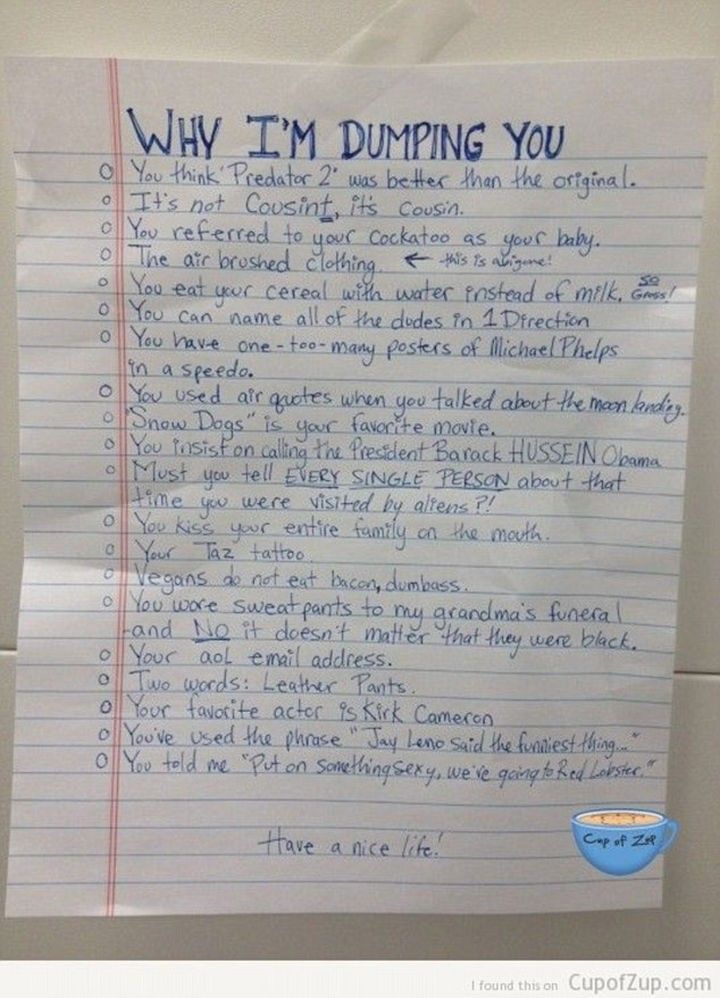 WHY I'M DUMPING YOU
o You think 'Predator 2' was better than the original.
o It's not Cousint, it's cousin.
o You referred to your cockatoo as your baby.
o The air brushed clothing. ← this is a biggone!
o You eat your cereal with water instead of milk. SO Gross!
o You can name all of the dudes in 1 Direction
o You have one-too-many posters of Michael Phelps
in a speedo.
o You used air quotes when you talked about the moon landing.
o "Snow Dogs" is your favorite movie.
o You insist on calling the President Barack HUSSEIN Obama
o Must you tell EVERY SINGLE PERSON about that
time you were visited by aliens?!
o You kiss your entire family on the mouth.
o Your Taz tattoo.
o Vegans do not eat bacon, dumbass.
o You wore sweatpants to my grandma's funeral
-and NO it doesn't matter that they were black.
o Your aol email address.
o Two words: Leather Pants.
o Your favorite actor is Kirk Cameron
o You've used the phrase "Jay Leno said the funniest thing..."
o You told me "Put on something sexy, we're going to Red Lobster."
Have a nice life!
Cup of Zup
I found this on CupofZup.com